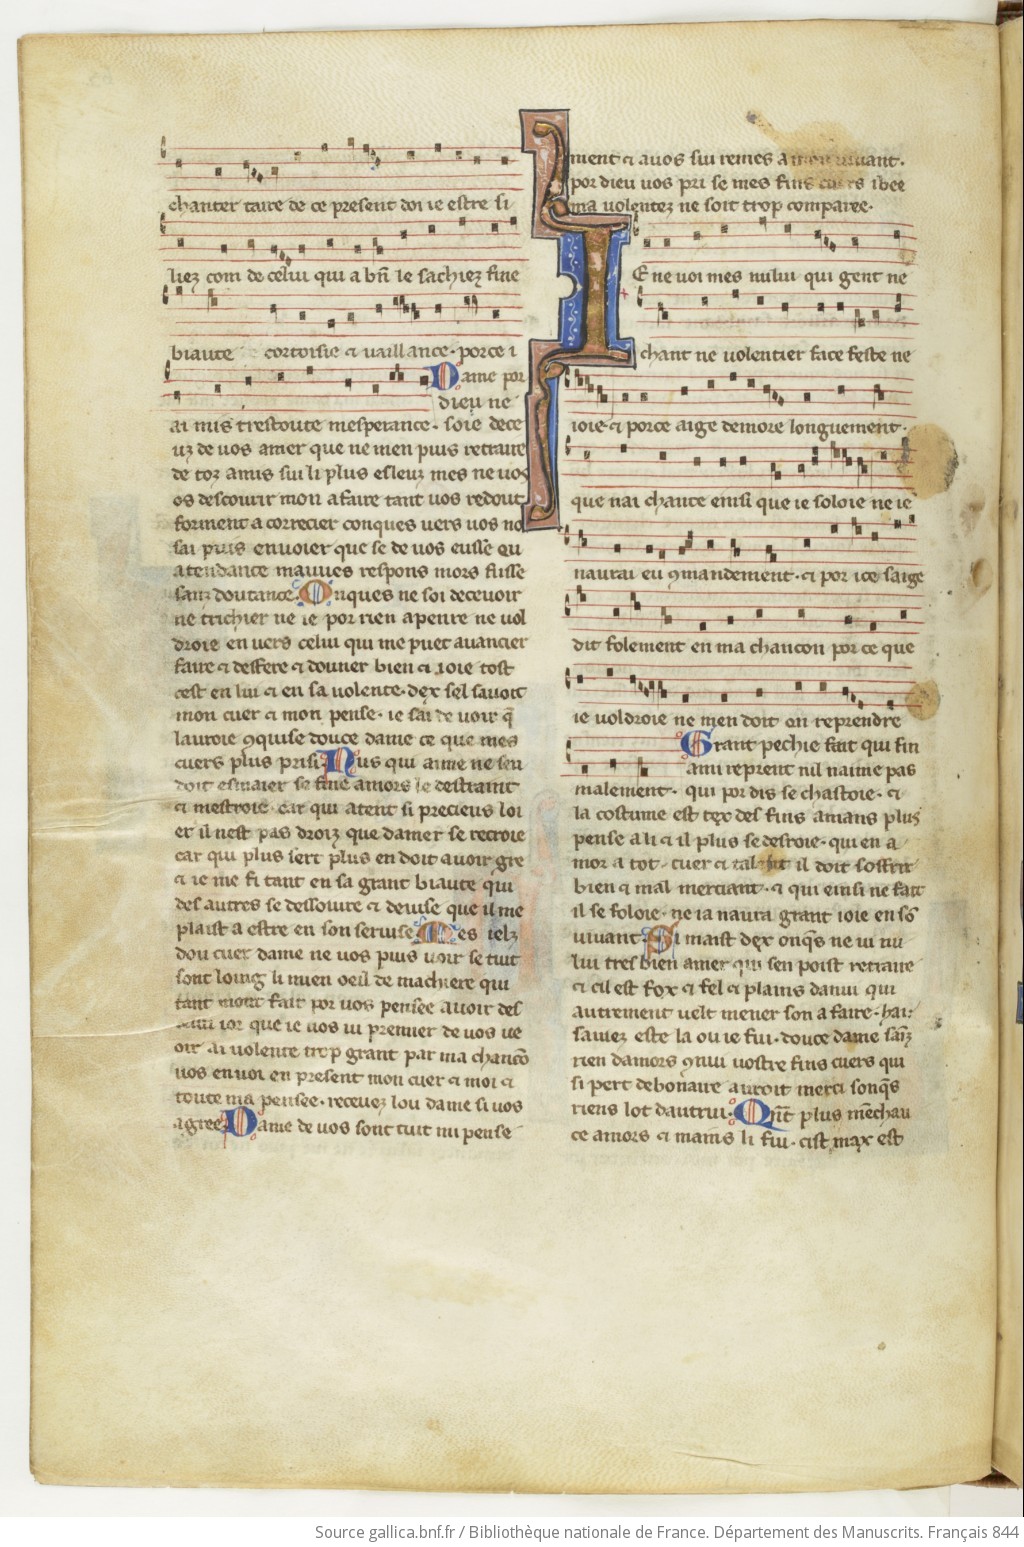 chanter taire de ce present doi ie estre si
liez com de celui qui a bñ le sachiez fine
biaute cortoisie ⁊ uaillance · por ce i
Dame por
dieu ne
ai mis trestoute mesperance · soie dece
uz de uos amer que ne men puis retraire
de toz amis sui li plus esleuz mes ne uos
os descourir mon afaire tant uos redout
forment a correcier conques uers uos no
sai puis enuoier que se de uos eusse en
atendance mauues respons mors fusse
sanz doutance. Onques ne soi deceuoir
ne trichier ne ie por rien apenre ne uol
droie en uers celui qui me puet auancier
faire ⁊ desfere ⁊ donner bien ⁊ ioie tost
cest en lui ⁊ en sa uolente · dex sel sauoit
mon cuer ⁊ mon pense · ie sai de uoir q̃
lauroie ꝯquise douce dame ce que mes
cuers plus prisi. Nus qui aime ne seu
doit esmaier se fine amors le destraint
⁊ mestroie car qui atent si precieus loi
er il nest pas droiz que damer se recroie
car qui plus sert plus en doit auoir gre
⁊ ie me fi tant en sa grant biaute qui
des autres se dessoiure ⁊ deuise que il me
plaist a estre en son seruise. Mes ielz
dou cuer dame ne uos puis uoir se tuit
sont loing li mien oeil de ma chiere qui
tant mont fait por uos pensee auoir des
ior que ie uos ui premier de uos ue
oir ai uolente trop grant par ma chancõ
uos enuoi en present mon cuer ⁊ moi ⁊
toute ma pensee · receuez lou dame si uos
agree. Dame de uos sont tuit mi pense
ment ⁊ auos sui remes a mon uiuant ·
por dieu uos pri se mes fins cuers ibee
ma uolentez ne soit trop comparee ·
IE ne uoi mes nului qui gent ne
chant ne uolentier face feste ne
ioie · ⁊ por ce aige demore longuement ·
que nai chante ensi que ie soloie ne ie
naurai eu ꝯmandement · ⁊ por ice saige
dit folement en ma chancon por ce que
ie uoldroie ne men doit on reprendre
Grant pechie fait qui fin
ami reprent nil naime pas
malement · qui por dis se chastoie · ⁊
la costume est tex des fins amans plus
pense a li ⁊ il plus se desroie · qui en a
mor a tot cuer ⁊ talent il doit soffrir
bien ⁊ mal merciant · ⁊ qui einsi ne fait
il se foloie · ne ia naura grant ioie en sõ
uiuant. Si maist dex onq̃s ne ui nu
lui tres bien amer qui sen poist retraire
⁊ cil est fox ⁊ fel ⁊ plains danui qui
autrement uelt mener son a faire · hai!
sauiez este la ou ie fui · douce dame sanz
rien damors ꝯnui uostre fins cuers qui
si pert debonaire auroit merci sonq̃s
riens lot dautrui. Qñt plus mẽchau
ce amors ⁊ mains li fui · cist max est
Source gallica.bnf.fr / Bibliothèque nationale de France. Département des Manuscrits. Français 844